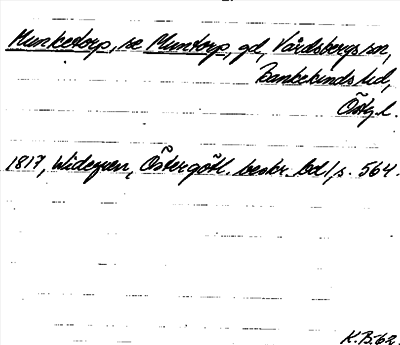 Munketorp, se Muntorp, gd, Vårdsbergs sn,
Bankekinds hd,
Östg. l.
1817, Widegren, Östergötl. beskr. bd 1 s. 564.
K.B. 62.